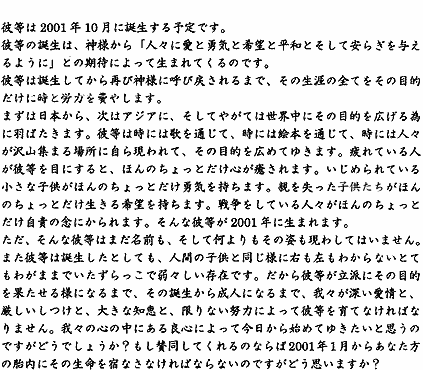 彼等は2001年10月に誕生する予定です。
彼等の誕生は、神様から「人々に愛と勇気と希望と平和とそして安らぎを与え
るように」との期待によって生まれてくるのです。
彼等は誕生してから再び神様に呼び戻されるまで、その生涯の全てをその目的
だけに時と労力を費やします。
まずは日本から、次はアジアに、そしてやがては世界中にその目的を広げる為
に羽ばたきます。彼等は時には歌を通じて、時には絵本を通じて、時には人々
が沢山集まる場所に自ら現われて、その目的を広めてゆきます。疲れている人
が彼等を目にすると、ほんのちょっとだけ心が癒されます。いじめられている
小さな子供がほんのちょっとだけ勇気を持ちます。親を失った子供たちがほん
のちょっとだけ生きる希望を持ちます。戦争をしている人々がほんのちょっと
だけ自責の念にかられます。そんな彼等が2001年に生まれます。
ただ、そんな彼等はまだ名前も、そして何よりもその姿も現わしてはいません。
また彼等は誕生したとしても、人間の子供と同じ様に右も左もわからないとて
もわがままでいたずらっこで弱々しい存在です。だから彼等が立派にその目的
を果たせる様になるまで、その誕生から成人になるまで、我々が深い愛情と、
厳しいしつけと、大きな知恵と、限りない努力によって彼等を育てなければな
りません。我々の心の中にある良心によって今日から始めてゆきたいと思うの
ですがどうでしょうか？もし賛同してくれるのならば2001年1月からあなた方
の胎内にその生命を宿なさなければならないのですがどう思いますか？